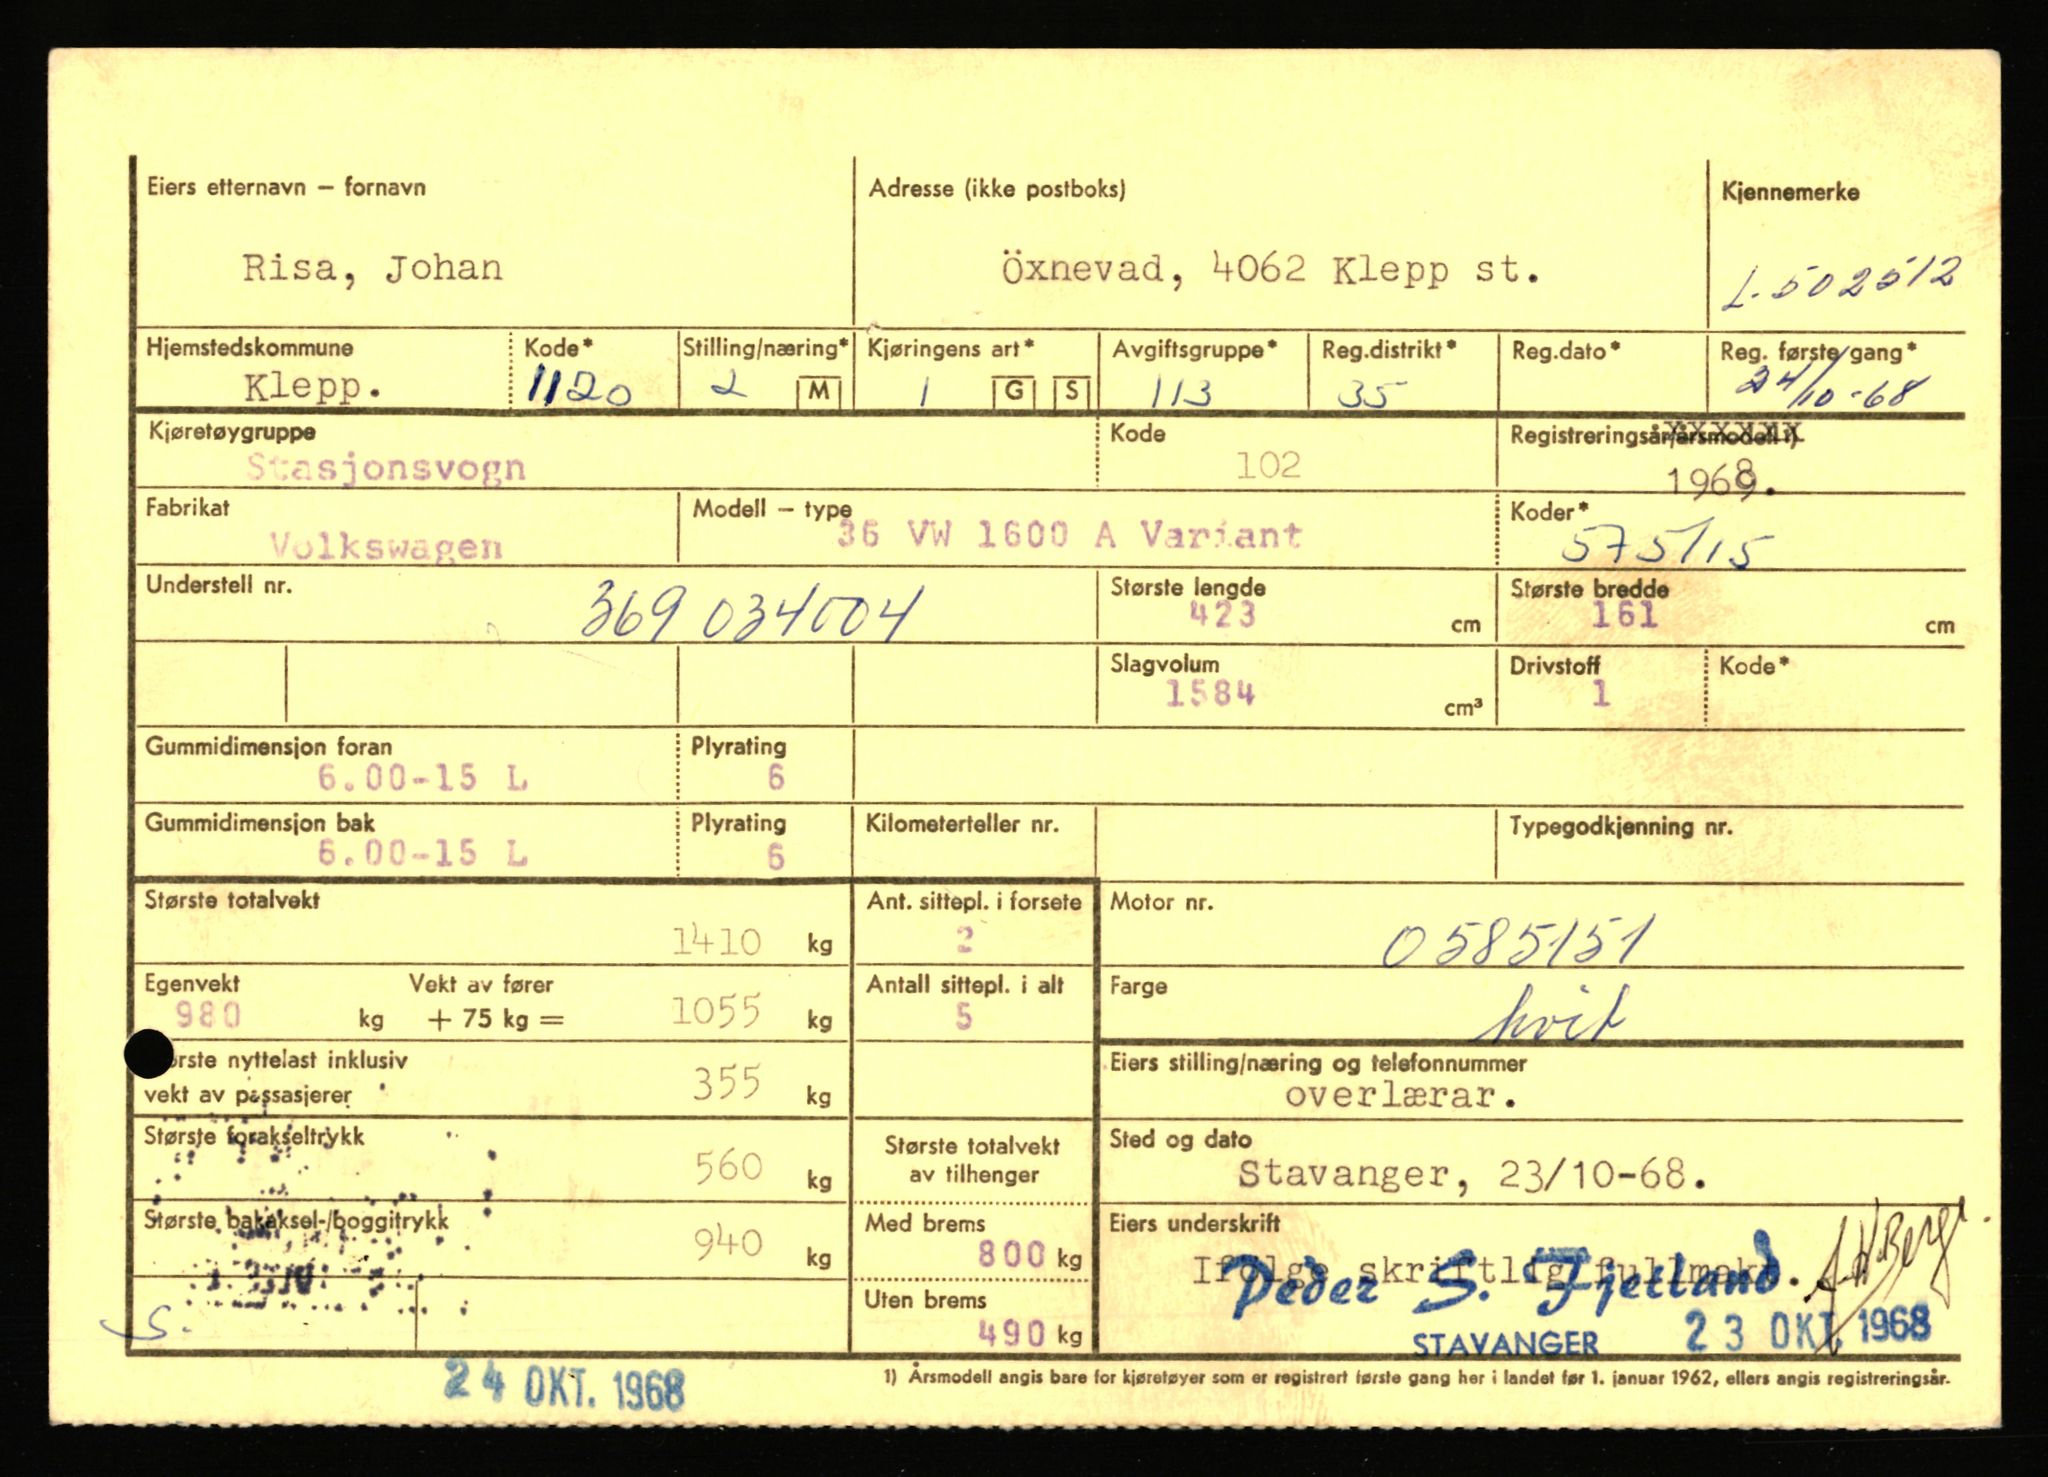 Eiers etternavn – fornavn
Adresse (ikke postboks)
Kjennemerke
Risa, Johan
Öxnevad, 4062 Klepp st.
L-502512
Hjemstedskommune
Kode*
Stilling/næring*
Kjøringens art*
Avgiftsgruppe*
Reg.distrikt*
Reg.dato*
Reg. første gang*
Klepp.
1120
2
M
1
G
S
113
35
24/10-68
Kjøretøygruppe
Kode
Registreringsår/årsmodell 1)
Stasjonsvogn
102
1968.
Fabrikat
Modell – type
Koder*
Volkswagen
36 VW 1600 A Variant
575/15
Understell nr.
369 034004
Største lengde
423 cm
Største bredde
161 cm
Slagvolum
1584 cm³
Drivstoff
1
Kode*
Gummidimensjon foran
6.00-15 L
Plyrating
6
Gummidimensjon bak
6.00-15 L
Plyrating
6
Kilometerteller nr.
Typegodkjenning nr.
Største totalvekt
1410 kg
Ant. sittepl. i forsete
2
Motor nr.
0585151
Egenvekt
980 kg
Vekt av fører
+ 75 kg = 1055 kg
Antall sittepl. i alt
5
Farge
hvit
ørste nyttelast inklusiv
vekt av passasjerer
355 kg
Eiers stilling/næring og telefonnummer
overlærar.
Største forakseltrykk
560 kg
Største totalvekt
av tilhenger
Sted og dato
Stavanger, 23/10-68.
Største bakaksel-/boggitrykk
940 kg
Med brems
800 kg
Eiers underskrift
Ifølge skriftlig fullmakt.
Peder S. Fjetland
Uten brems
490 kg
STAVANGER 23 OKT. 1968
S.
24 OKT. 1968
1) Årsmodell angis bare for kjøretøyer som er registrert første gang her i landet før 1. januar 1962, ellers angis registreringsår.